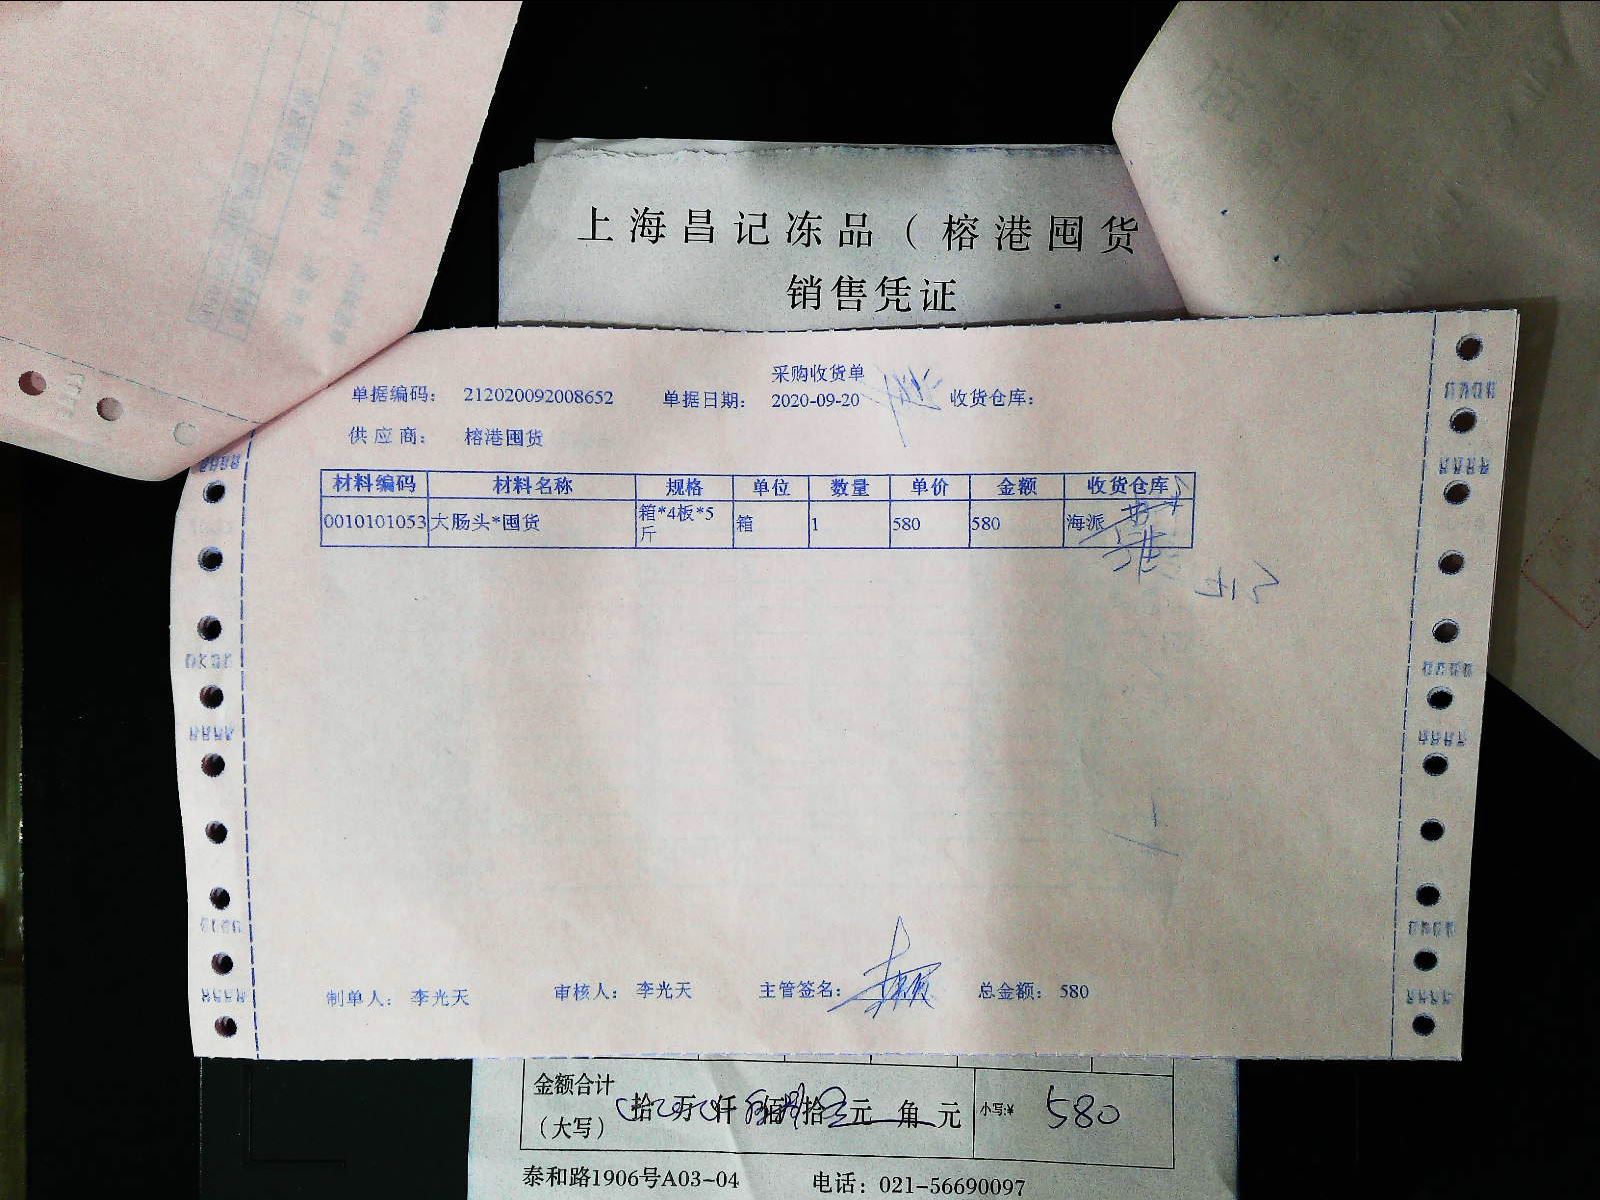 上海昌记冻品（榕港囤货
销售凭证
采购收货单
单据编码： 212020092008652 单据日期： 2020-09-20 收货仓库：
供应商： 榕港囤货
材料编码 材料名称 规格 单位 数量 单价 金额 收货仓库
0010101053 大肠头*囤货 箱*4板*5斤 箱 1 580 580 海派
制单人： 李光天 审核人： 李光天 主管签名： 总金额： 580
金额合计
（大写） 拾 万 仟 佰 拾 元 角 元 小写:¥ 580
泰和路1906号A03-04 电话：021-56690097